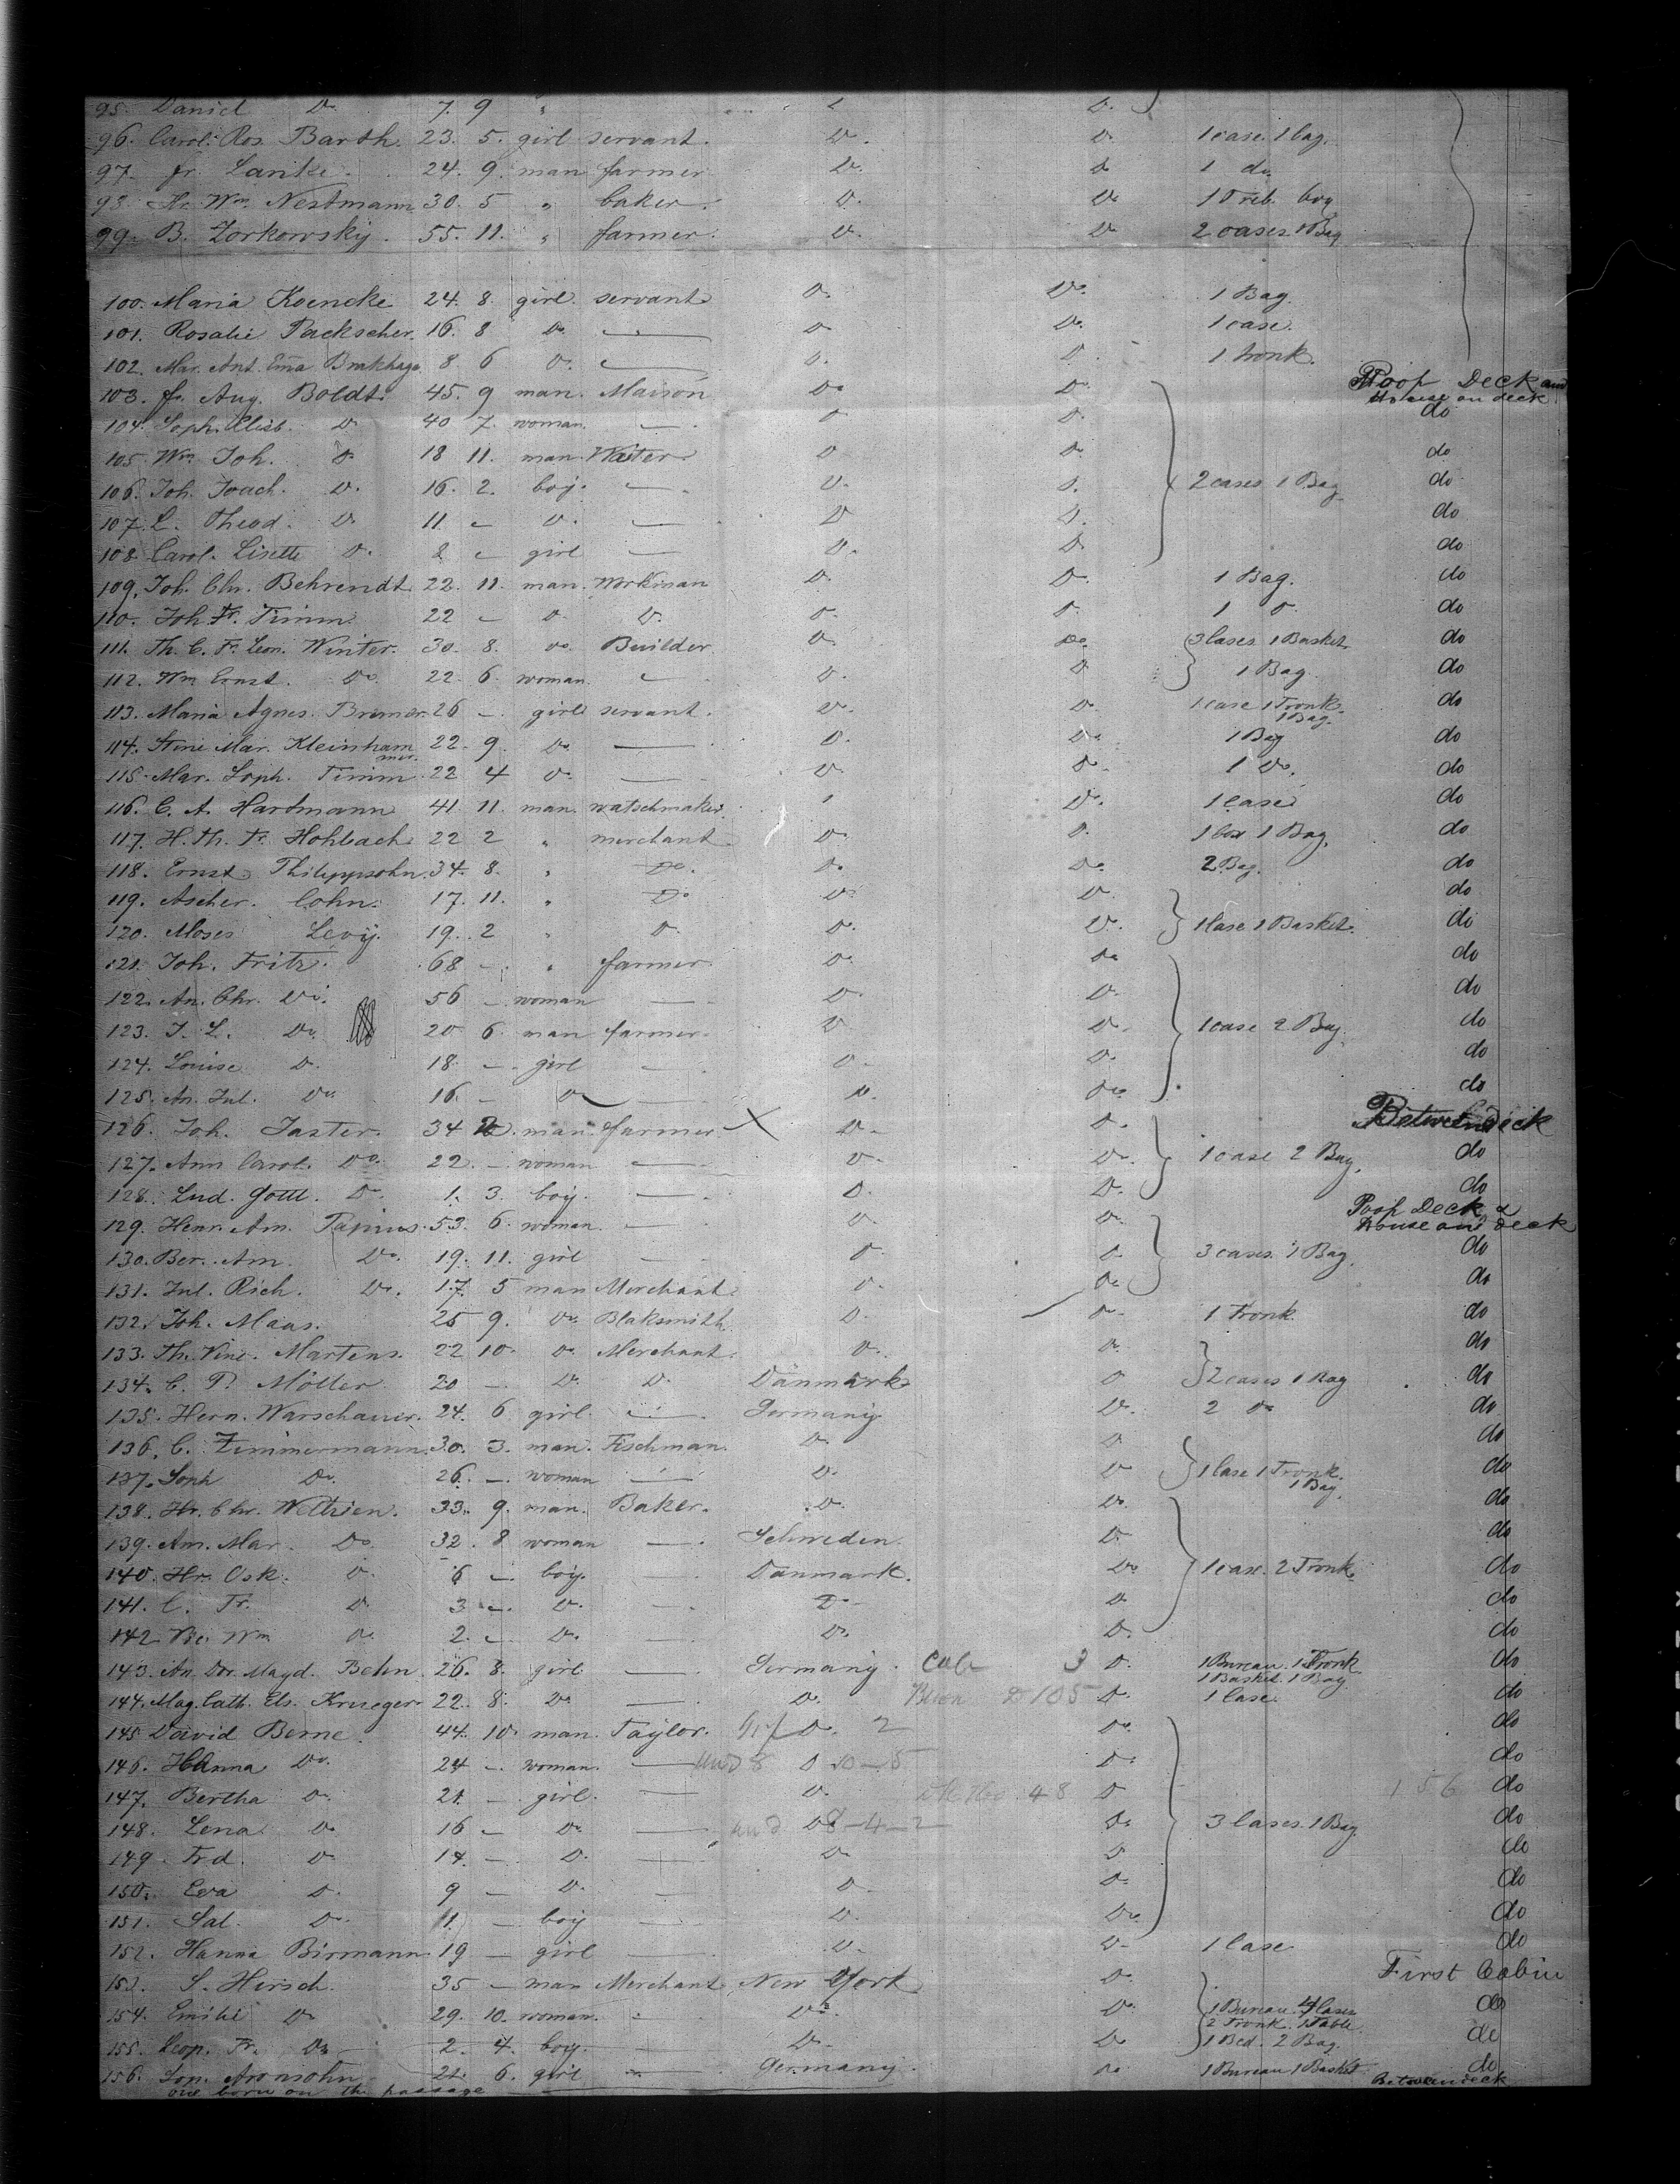 95. Daniel Do. 7. 9 "
96. Carol. Ros. Barth. 23. 5. girl servant. Do. Do. 1 case. 1 bag.
97. Fr. Lanke. 24. 9. man farmer Do. Do 1 do.
98. Wm. Nestmann 30. 5 " baker. Do. Do bag
99. B. Zorkowsky. 55. 11. " farmer. Do. Do 2 cases. 1 Bag
100. Maria Koencke 24. 8. girl. servant Do. Do. 1 Bag.
101. Rosalie Packscher. 16. 8 Do. — Do Do. 1 case.
102. Mar. Ant. Ema Brakhage 8 6 Do. — Do. Do. 1 tronk.
103. Fr. Aug. Boldt. 45. 9 man. Do Do Poop Deck and House on deck
104. Soph. Elisb. Do. 40 7. woman. — Do Do. do
105. Wm. Joh. Do 18 11. man. Waiter. Do Do. do
106. Joh. Joach. Do. 16. 2. boy. — Do. Do. 2 cases 1 Bag do
107. L. Theod. Do 11 — Do. — Do Do. do
108. Carol. Lisette Do. 8 — girl — Do. Do. do
109. Joh. Chr. Behrendt. 22. 11. man. Workman Do. Do. 1 Bag. do
110. Joh. Fr. Timm. 22 — Do. Do. Do. Do. 1 Do. do
111. Th. C. Fr. Leon. Winter. 30. 8. Do. Builder Do. Do. 3 Cases 1 Basket. do
112. Wm Ernst. Do. 22. 6. woman — Do. Do 1 Bag. do
113. Maria Agnes. Bremer. 26 —. girl servant. Do. Do. 1 case 1 Tronk. 1 Bag. do
114. Stine Mar. Kleinhammer. 22. 9. Do. — Do. Do. 1 Bag do
115. Mar. Soph. Timm. 22 4 Do. — Do. Do. 1 Do. do
116. C. A. Hartmann 41. 11. man. watschmaker. Do. 1 case do
117. H. Th. Fr. Hohlbach 22 2 " merchant Do. Do. 1 box 1 Bag. do
118. Ernst Philippsohn. 34. 8. " Do. Do. Do. 2 Bag. do
119. Ascher. Cohn. 17. 11. " Do Do. Do. do
120. Moses Levy. 19. 2 " Do. Do. Do. 1 Case 1 Basket. do
121. Joh. Fritz. 68 —. " farmer. Do. Do do
122. An. Chr. Do. 56 —. woman — Do. Do. do
123. J. L. Do. 20 6. man farmer. Do Do. 1 case 2 Bag. do
124. Louise Do. 18. — girl — Do. Do. do
125. An. Jul. Do. 16 — Do — Do. Do. do
126. Joh. Jaster. 34 man. farmer. X Do. Do. Between deck
127. Ann Carol. Do. 22. —. woman — Do. Do. 1 case 2 Bag. do
128. Lud. Gottl. Do. 1. 3. boy. — Do. Do. do
129. Henr. Am. 53. 6. woman — Do. Do. Poop Deck & House on deck
130. Ber. Am. Do. 19. 11. girl — Do. Do. 3 cases. 1 Bag. do
131. Jul. Rich. Do. 17. 5 man Merchant. Do. Do. do
132. Joh. Maas. 25 9. Do. Blaksmith. Do. Do. 1 Tronk. do
133. Th. Vine. Martens. 22 10. Do. Merchant. Do. Do. do
134. C. P. Möller 20 — Do. Do. Dänmark. Do 2 cases 1 Bag do
135. Hern. Warschauer. 24. 6 girl. — Germany Do. 2 Do do
136. C. Zimmermann. 30. 3. man. Fischman. Do. Do. do
137. Soph Do. 26. —. woman — Do. Do 1 Case 1 Tronk. 1 Bag. do
138. Hr. Chr. Wethien. 33. 9. man. Baker. Do. Do. do
139. Am. Mar. Do. 32. 8 woman — Schweden. Do. do
140. Hr. Osk. Do. 6 —. boy. — Dänmark. Do. 1 case. 2 Tronk. do
141. C. Fr. Do. 3 —. Do. — Do. Do do
142 Wm Do. 2. — Do. — Do. Do. do
143. An. Dor. Magd. Behn. 26. 8. girl — Germany. 3 Do. 1 Bureau. 1 Tronk 1 Basket. 1 Bag. do
144. Mag. Cath. Els. Krueger. 22. 8. Do. — Do. Do. 1 Case do
145. David Berne. 44. 10. man. Taylor. Do. 2 Do. do
146. Hanna Do. 24 —. woman. — Do Do. do
147. Bertha Do. 21. — girl. — Do. 48 Do 156 do
148. Lena Do 16 — Do. — Do 8-4-2 Do. 3 Cases. 1 Bag do
149. Frd. Do 14. —. Do. — Do. Do do
150. Eva Do. 9 — Do. — Do. Do. do
151. Sal. Do. 11. — boy — Do. Do. do
152. Hanna Birmann. 19 — girl — Do. Do. 1 Case do
153. S. Hirsch. 35 — man Merchant. New York Do. First Cabin
154. Emilie Do 29. 10. woman. Do. Do. 1 Bureau. 4 Cases 2 Tronk. 1 Table do
155. Leop. Fr. Do. 2. 4. boy. — Do. Do 1 Bed. 2 Bag. do
156. Aronsohn. 21. 6. girl — Germany. Do. 1 Bureau 1 Basket do
one born on the passage — Between deck